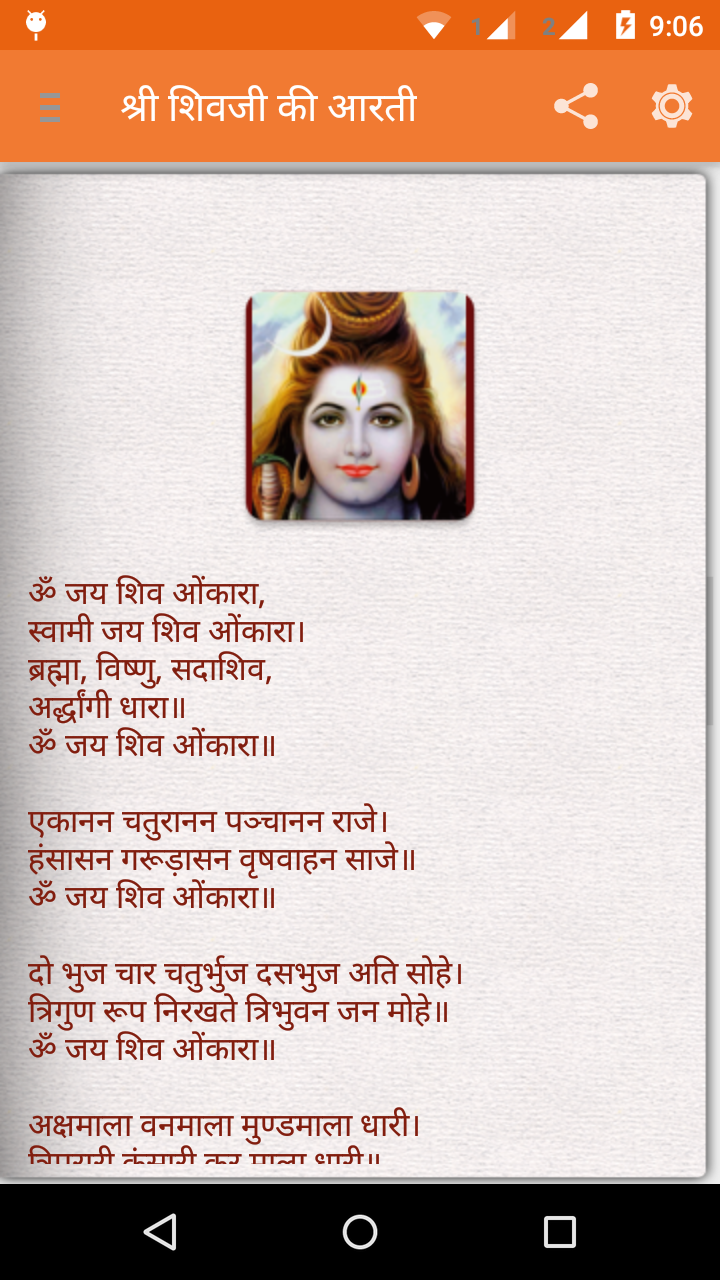 1 2 9:06
श्री शिवजी की आरती
ॐ जय शिव ओंकारा,
स्वामी जय शिव ओंकारा।
ब्रह्मा, विष्णु, सदाशिव,
अर्द्धांगी धारा॥
ॐ जय शिव ओंकारा॥
एकानन चतुरानन पञ्चानन राजे।
हंसासन गरूड़ासन वृषवाहन साजे॥
ॐ जय शिव ओंकारा॥
दो भुज चार चतुर्भुज दसभुज अति सोहे।
त्रिगुण रूप निरखते त्रिभुवन जन मोहे॥
ॐ जय शिव ओंकारा॥
अक्षमाला वनमाला मुण्डमाला धारी।